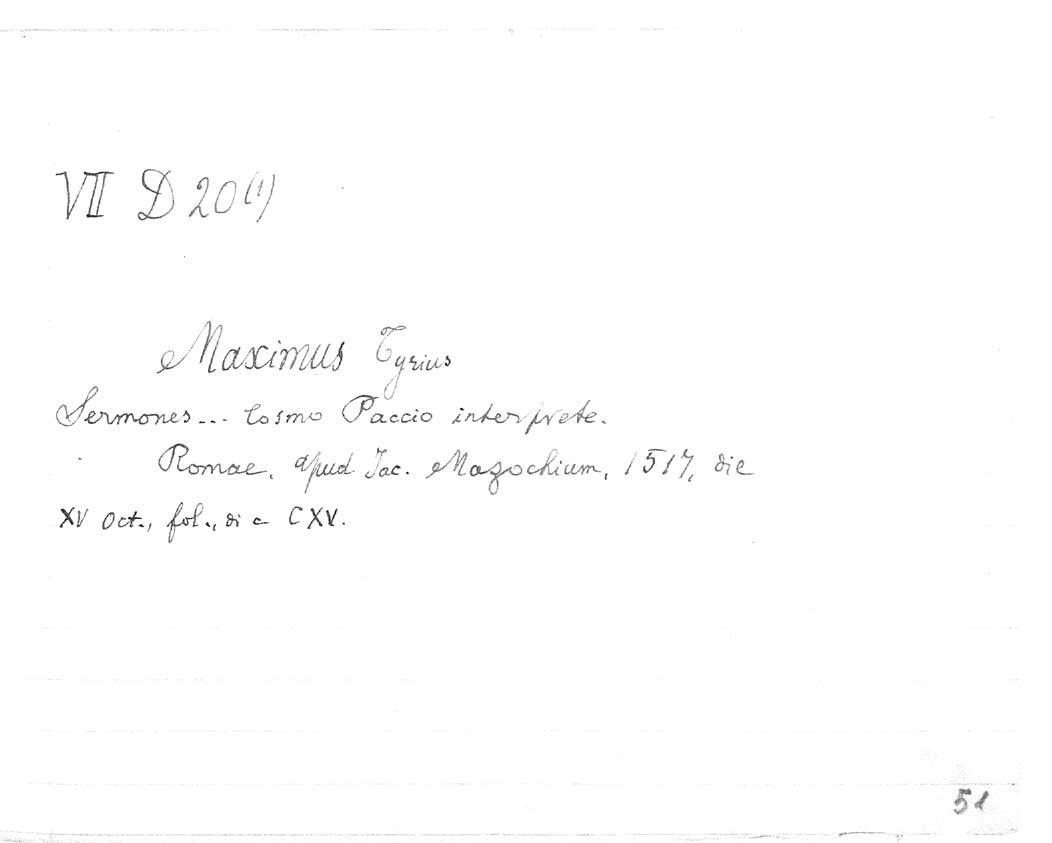 VII D 20(1)
Maximus Tyrius
Sermones... Cosmo Paccio interprete.
Romae, apud Jac. Mazochium, 1517, die
XV Oct., fol., di c CXV.
51